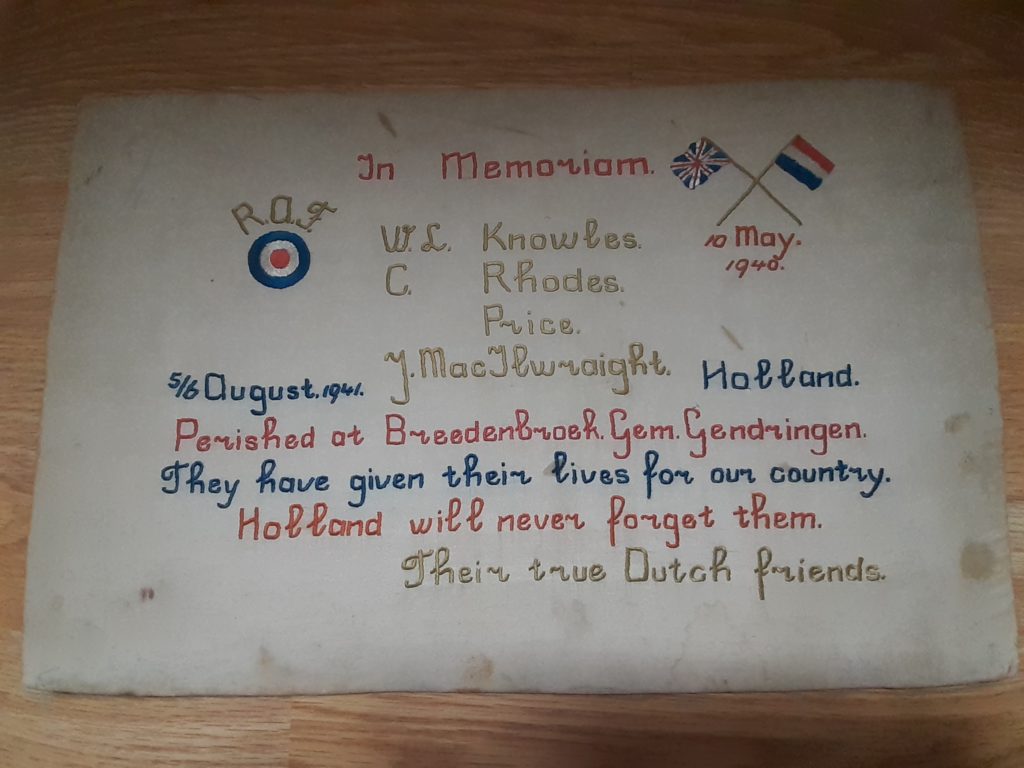 In Memoriam.
R.A.F
W.L. Knowles.
10 May.
1940.
C. Rhodes.
Price.
J. MacIlwraight.
5/6 August. 1941.
Holland.
Perished at Breedenbroek. Gem. Gendringen.
They have given their lives for our country.
Holland will never forget them.
Their true Dutch friends.